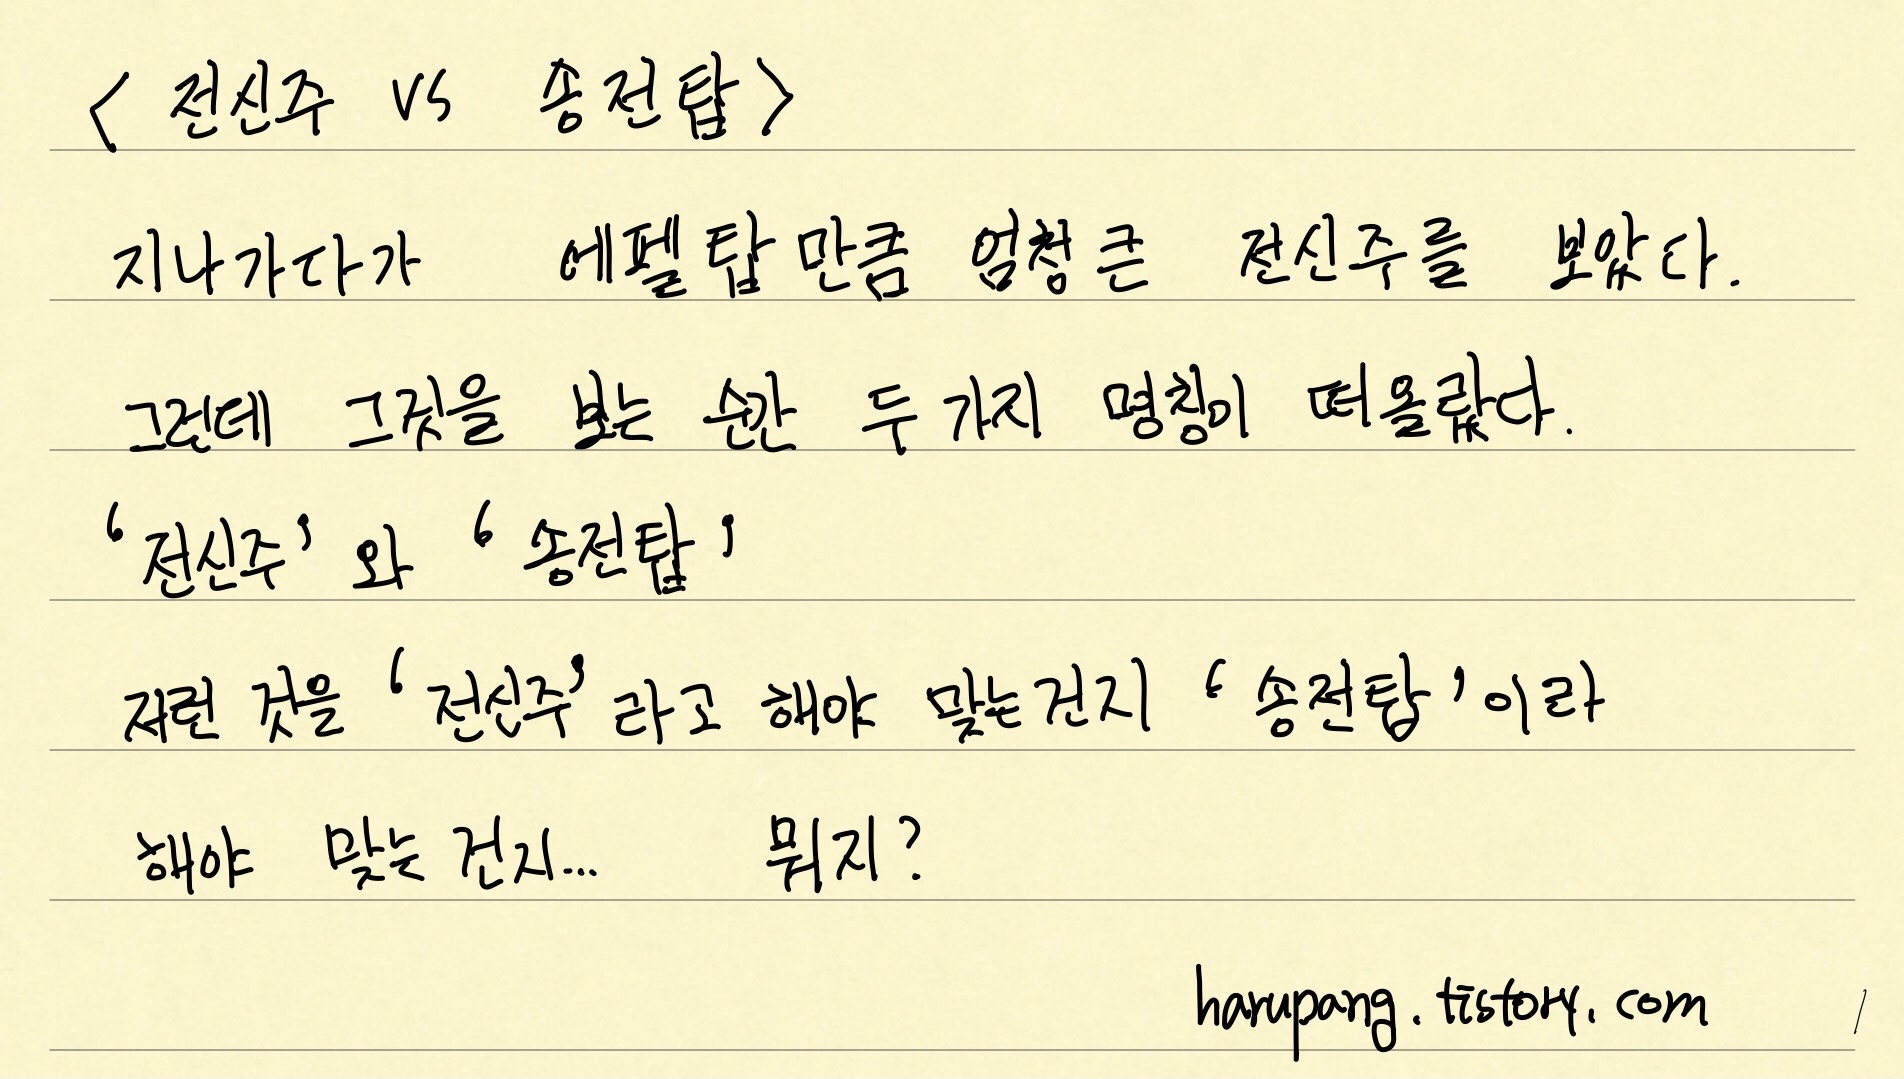 < 전신주 vs 송전탑 >
지나가다가 에펠탑만큼 엄청 큰 전신주를 보았다.
그런데 그것을 보는 순간 두 가지 명칭이 떠올랐다.
'전신주'와 '송전탑'
저런 것을 '전신주'라고 해야 맞는건지 '송전탑'이라
해야 맞는 건지... 뭐지?
harupang.tistory.com